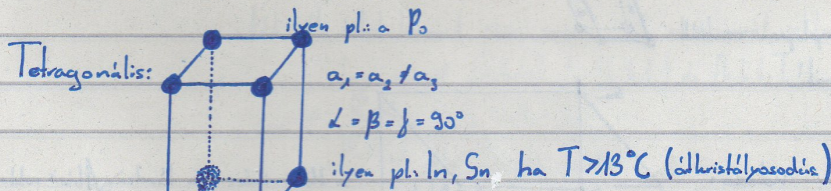 ilyen pl.: a Po
Tetragonális:
a₁ = a₂ ≠ a₃
α = β = γ = 90°
ilyen pl. In, Sn, ha T > 13°C (átkristályosodás)